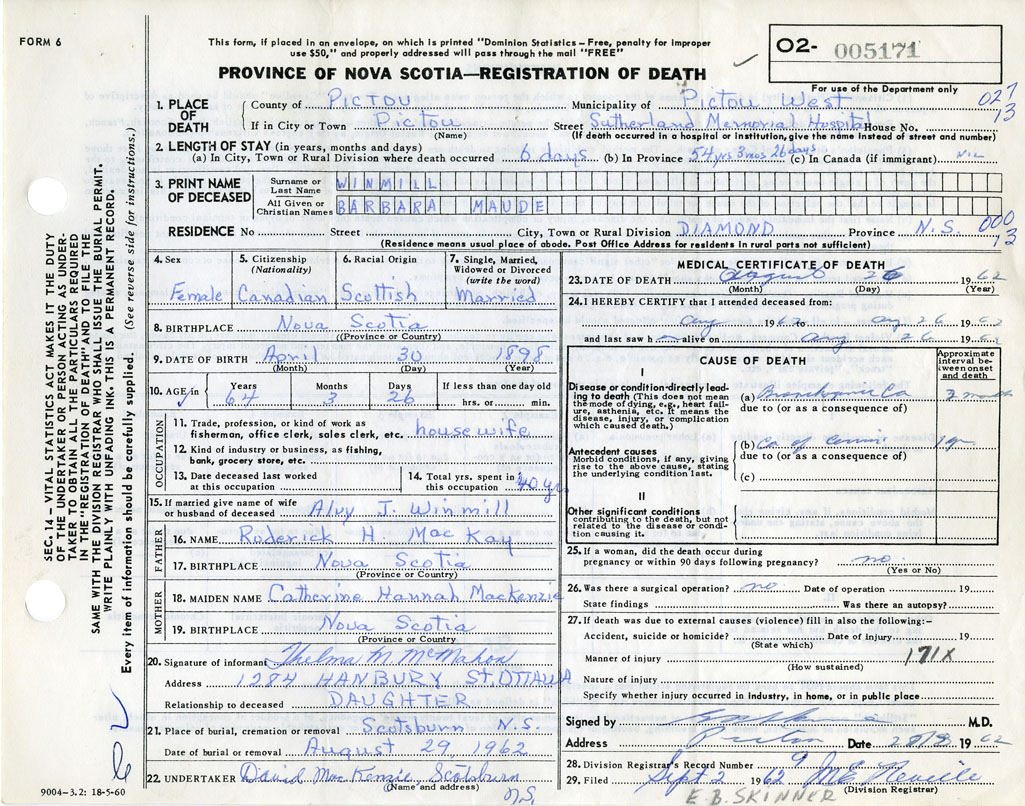 FORM 6
This form, if placed in an envelope, on which is printed "Dominion Statistics – Free, penalty for improper
use $50," and properly addressed will pass through the mail "FREE"
PROVINCE OF NOVA SCOTIA—REGISTRATION OF DEATH
O2- 005171
For use of the Department only
027
13
1. PLACE OF DEATH
County of PICTOU Municipality of Pictou West
If in City or Town Pictou Street Sutherland Memorial Hospital House No.
(Name) (If death occurred in a hospital or institution, give the name instead of street and number)
2. LENGTH OF STAY (in years, months and days)
(a) In City, Town or Rural Division where death occurred 6 days (b) In Province 54 yrs 3 mos 26 days (c) In Canada (if immigrant) NIL
3. PRINT NAME OF DECEASED
Surname or Last Name WINMILL
All Given or Christian Names BARBARA MAUDE
RESIDENCE No Street City, Town or Rural Division DIAMOND Province N.S.
000
13
(Residence means usual place of abode. Post Office Address for residents in rural parts not sufficient)
4. Sex
Female
5. Citizenship
(Nationality)
Canadian
6. Racial Origin
Scottish
7. Single, Married,
Widowed or Divorced
(write the word)
Married
8. BIRTHPLACE Nova Scotia
(Province or Country)
9. DATE OF BIRTH April 30 1898
(Month) (Day) (Year)
10. AGE in Years Months Days If less than one day old
64 3 26 hrs. or min.
OCCUPATION
11. Trade, profession, or kind of work as
fisherman, office clerk, sales clerk, etc. housewife
12. Kind of industry or business, as fishing,
bank, grocery store, etc.
13. Date deceased last worked
at this occupation
14. Total yrs. spent in
this occupation 40 yrs
15. If married give name of wife
or husband of deceased Alvy J. Winmill
FATHER
16. NAME Roderick H. MacKay
17. BIRTHPLACE Nova Scotia
(Province or Country)
MOTHER
18. MAIDEN NAME Catherine Hannah MacKenzie
19. BIRTHPLACE Nova Scotia
(Province or Country)
20. Signature of informant Thelma M McMahon
Address 1284 HANBURY ST. OTTAWA
Relationship to deceased DAUGHTER
21. Place of burial, cremation or removal Scotsburn N.S.
Date of burial or removal August 29 1962
22. UNDERTAKER David MacKenzie, Scotsburn
(Name and address) N.S.
9004-3.2: 18-5-60
MEDICAL CERTIFICATE OF DEATH
23. DATE OF DEATH August 26 1962
(Month) (Day) (Year)
24. I HEREBY CERTIFY that I attended deceased from:
Aug 1962 to Aug 26 1962
and last saw h alive on Aug 26 1962
CAUSE OF DEATH
Approximate
interval be-
tween onset
and death
I
Disease or condition directly lead-
ing to death (This does not mean
the mode of dying, e.g., heart fail-
ure, asthenia, etc. It means the
disease, injury, or complication
which caused death.)
(a) Ca 2
due to (or as a consequence of)
Antecedent causes
Morbid conditions, if any, giving
rise to the above cause, stating
the underlying condition last.
(b) Ca of Cervix 1 yr
due to (or as a consequence of)
(c)
II
Other significant conditions
contributing to the death, but not
related to the disease or condi-
tion causing it.
25. If a woman, did the death occur during
pregnancy or within 90 days following pregnancy? no
(Yes or No)
26. Was there a surgical operation? no Date of operation 19
State findings Was there an autopsy?
27. If death was due to external causes (violence) fill in also the following:—
Accident, suicide or homicide? Date of injury 19
(State which)
Manner of injury 171X
(How sustained)
Nature of injury
Specify whether injury occurred in industry, in home, or in public place
Signed by M.D.
Address Pictou Date 28/8 1962
28. Division Registrar's Record Number 9
29. Filed Sept 2 1962
(Division Registrar)
E.B. SKINNER
SEC. 14 – VITAL STATISTICS ACT MAKES IT THE DUTY
OF THE UNDERTAKER OR PERSON ACTING AS UNDER-
TAKER TO OBTAIN ALL THE PARTICULARS REQUIRED
IN THE "REGISTRATION OF DEATH" AND TO FILE THE
SAME WITH THE DIVISION REGISTRAR WHO SHALL ISSUE THE BURIAL PERMIT.
WRITE PLAINLY WITH UNFADING INK. THIS IS A PERMANENT RECORD.
Every item of information should be carefully supplied. (See reverse side for instructions.)